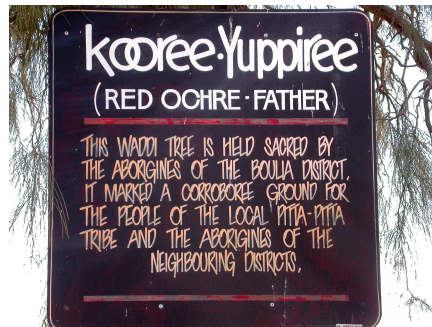 kooree·Yuppiree
(RED OCHRE - FATHER)
THIS WADDI TREE IS HELD SACRED BY
THE ABORIGINES OF THE BOULIA DISTRICT.
IT MARKED A CORROBOREE GROUND FOR
THE PEOPLE OF THE LOCAL PITTA-PITTA
TRIBE AND THE ABORIGINES OF THE
NEIGHBOURING DISTRICTS.